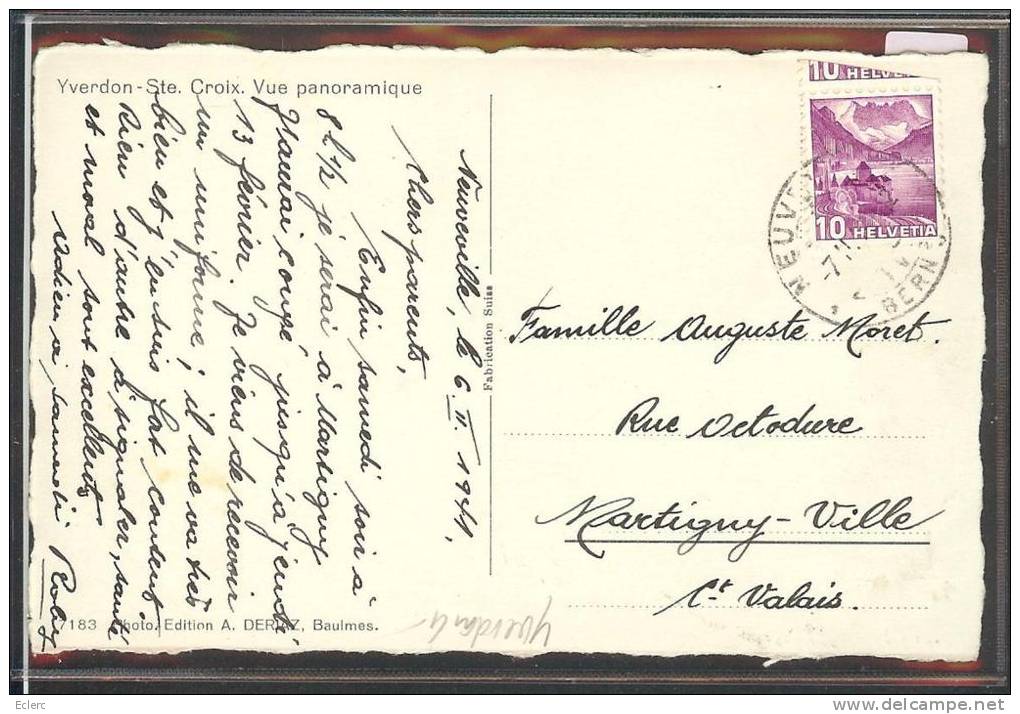 Yverdon-Ste. Croix. Vue panoramique
Neuveville, le 6. II. 1941.
Chers parents,
Enfin samedi soir à
8 h ½ je serai à Martigny
J'aurai congé, jusqu'à jeudi
13 février. Je viens de recevoir
un uniforme; il me va très
bien et j'en suis fort content.
Rien d'autre à signaler, santé
et moral sont excellents
Adieu à samedi
Fabrication Suisse
10 HELVETIA
10 HELVETIA
NEUVEV
BERN
Famille Auguste Moret.
Rue Octodure
Martigny-Ville
Ct Valais.
7183 Photo. Edition A. DERIAZ, Baulmes.
Yverdon
Eclerc
delcampe.net